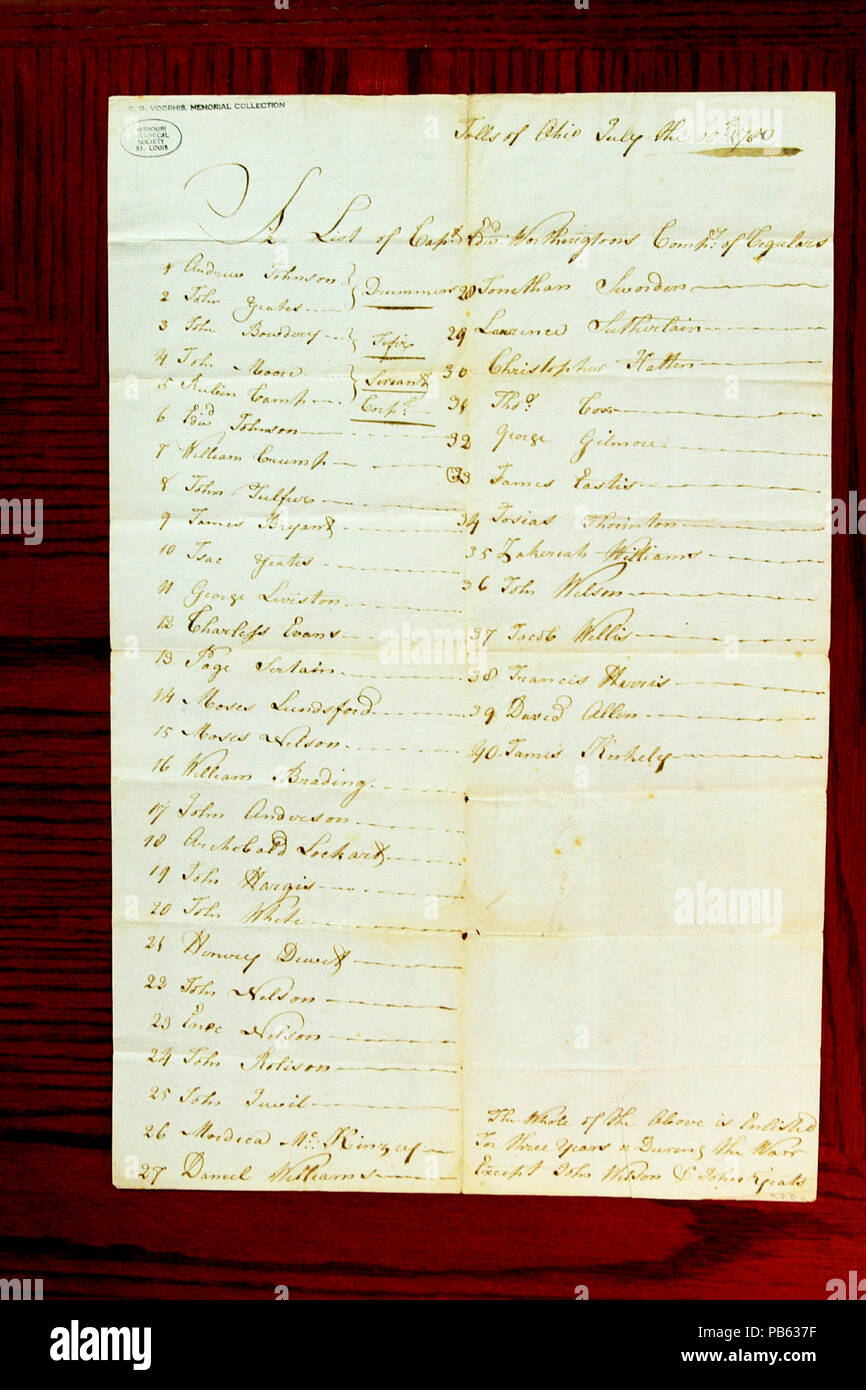 E. G. VOORHIS, MEMORIAL COLLECTION
MISSOURI
HISTORICAL
SOCIETY
ST. LOUIS
Falls of Ohio July the 1780
A List of Capt. Edwd. Worthingtons Compy. of Regulars
1 Andrew Johnson
2 John Yeates
Drummers
3 John Bowdery
4 John Moore
Serjant
5 Reubin Camp
Corpl.
6 Edwd Johnson
7 William Crump
8 John
9 James Bryant
10 Isac Yeates
11 George Leviston
12 Charless Evans
13 Page Sertain
14 Moses Lundsford
15 Moses Nelson
16 William Brading
17 John Anderson
18 Archibald Lockart
19 John Hargis
20 John White
21 Henvey Dewit
22 John Nelson
23 Enoc Nelson
24 John Rolison
25 John
26 Mordica Mc. Kinzey
27 Daniel Williams
28 Jonethan Sworden
29 Laurence Sutherlain
30 Christopher Hatten
31 Thos. Cox
32 George Gilmore
33 James Eastis
34 Josias Thornton
35 Zakeriah Williams
36 John Wilson
37 Jacob Willis
38 Francis Harris
39 David Allen
40 James Kirkely
The Whole of the Above is Enlisted
For three Years or During the Warr
Except John Wilson & John Yeats
alamy
alamy
Image ID: PB637F
www.alamy.com